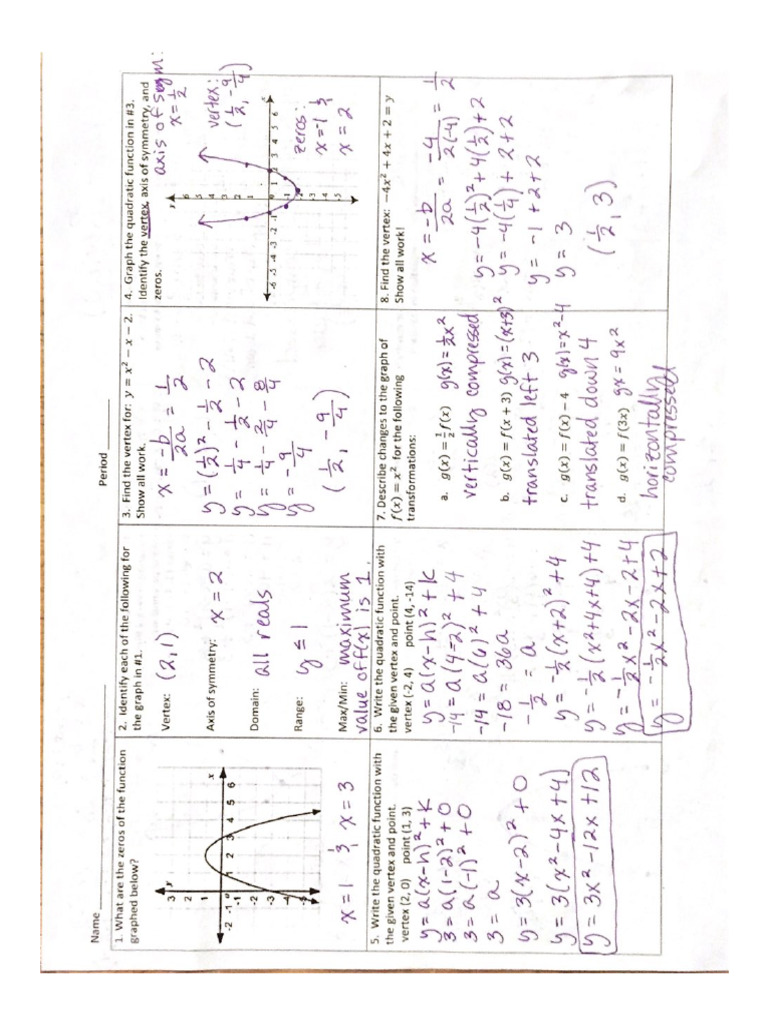 Name
Period
1. What are the zeros of the function
graphed below?
y
x
3
2
1
-2 -1 0 1 2 3 4 5 6
-1
-2
-3
-4
-5
x = 1 & x = 3
2. Identify each of the following for
the graph in #1.
Vertex: (2, 1)
Axis of symmetry: x = 2
Domain: all reals
Range: y ≤ 1
Max/Min: maximum
value of f(x) is 1.
3. Find the vertex for: y = x² − x − 2.
Show all work.
x = -b/2a = 1/2
y = (1/2)² - 1/2 - 2
y = 1/4 - 1/2 - 2
y = 1/4 - 2/4 - 8/4
y = - 9/4
(1/2, - 9/4)
4. Graph the quadratic function in #3.
Identify the vertex, axis of symmetry, and
zeros.
axis of sym:
x = 1/2
vertex:
(1/2, -9/4)
y
x
6
5
4
3
2
1
-6 -5 -4 -3 -2 -1 0 1 2 3 4 5 6
-1
-2
-3
-4
-5
zeros:
x = -1 &
x = 2
5. Write the quadratic function with
the given vertex and point.
vertex (2, 0) point (1, 3)
y = a(x-h)² + K
3 = a(1-2)² + 0
3 = a(-1)² + 0
3 = a
y = 3(x-2)² + 0
y = 3(x² - 4x + 4)
y = 3x² - 12x + 12
6. Write the quadratic function with
the given vertex and point.
vertex (-2, 4) point (4, -14)
y = a(x-h)² + K
-14 = a(4-⁻2)² + 4
-14 = a(6)² + 4
-18 = 36a
-1/2 = a
y = -1/2(x+2)² + 4
y = -1/2(x² + 4x + 4) + 4
y = -1/2x² - 2x - 2 + 4
y = -1/2x² - 2x + 2
7. Describe changes to the graph of
f(x) = x² for the following
transformations:
a. g(x) = 1/2 f(x) g(x) = 1/2x²
vertically compressed
b. g(x) = f(x + 3) g(x) = (x+3)²
translated left 3
c. g(x) = f(x) − 4 g(x) = x² - 4
translated down 4
d. g(x) = f(3x) gx = 9x²
horizontally
compressed
8. Find the vertex: −4x² + 4x + 2 = y
Show all work!
x = -b/2a = -4/2(-4) = 1/2
y = -4(1/2)² + 4(1/2) + 2
y = -4(1/4) + 2 + 2
y = -1 + 2 + 2
y = 3
(1/2, 3)